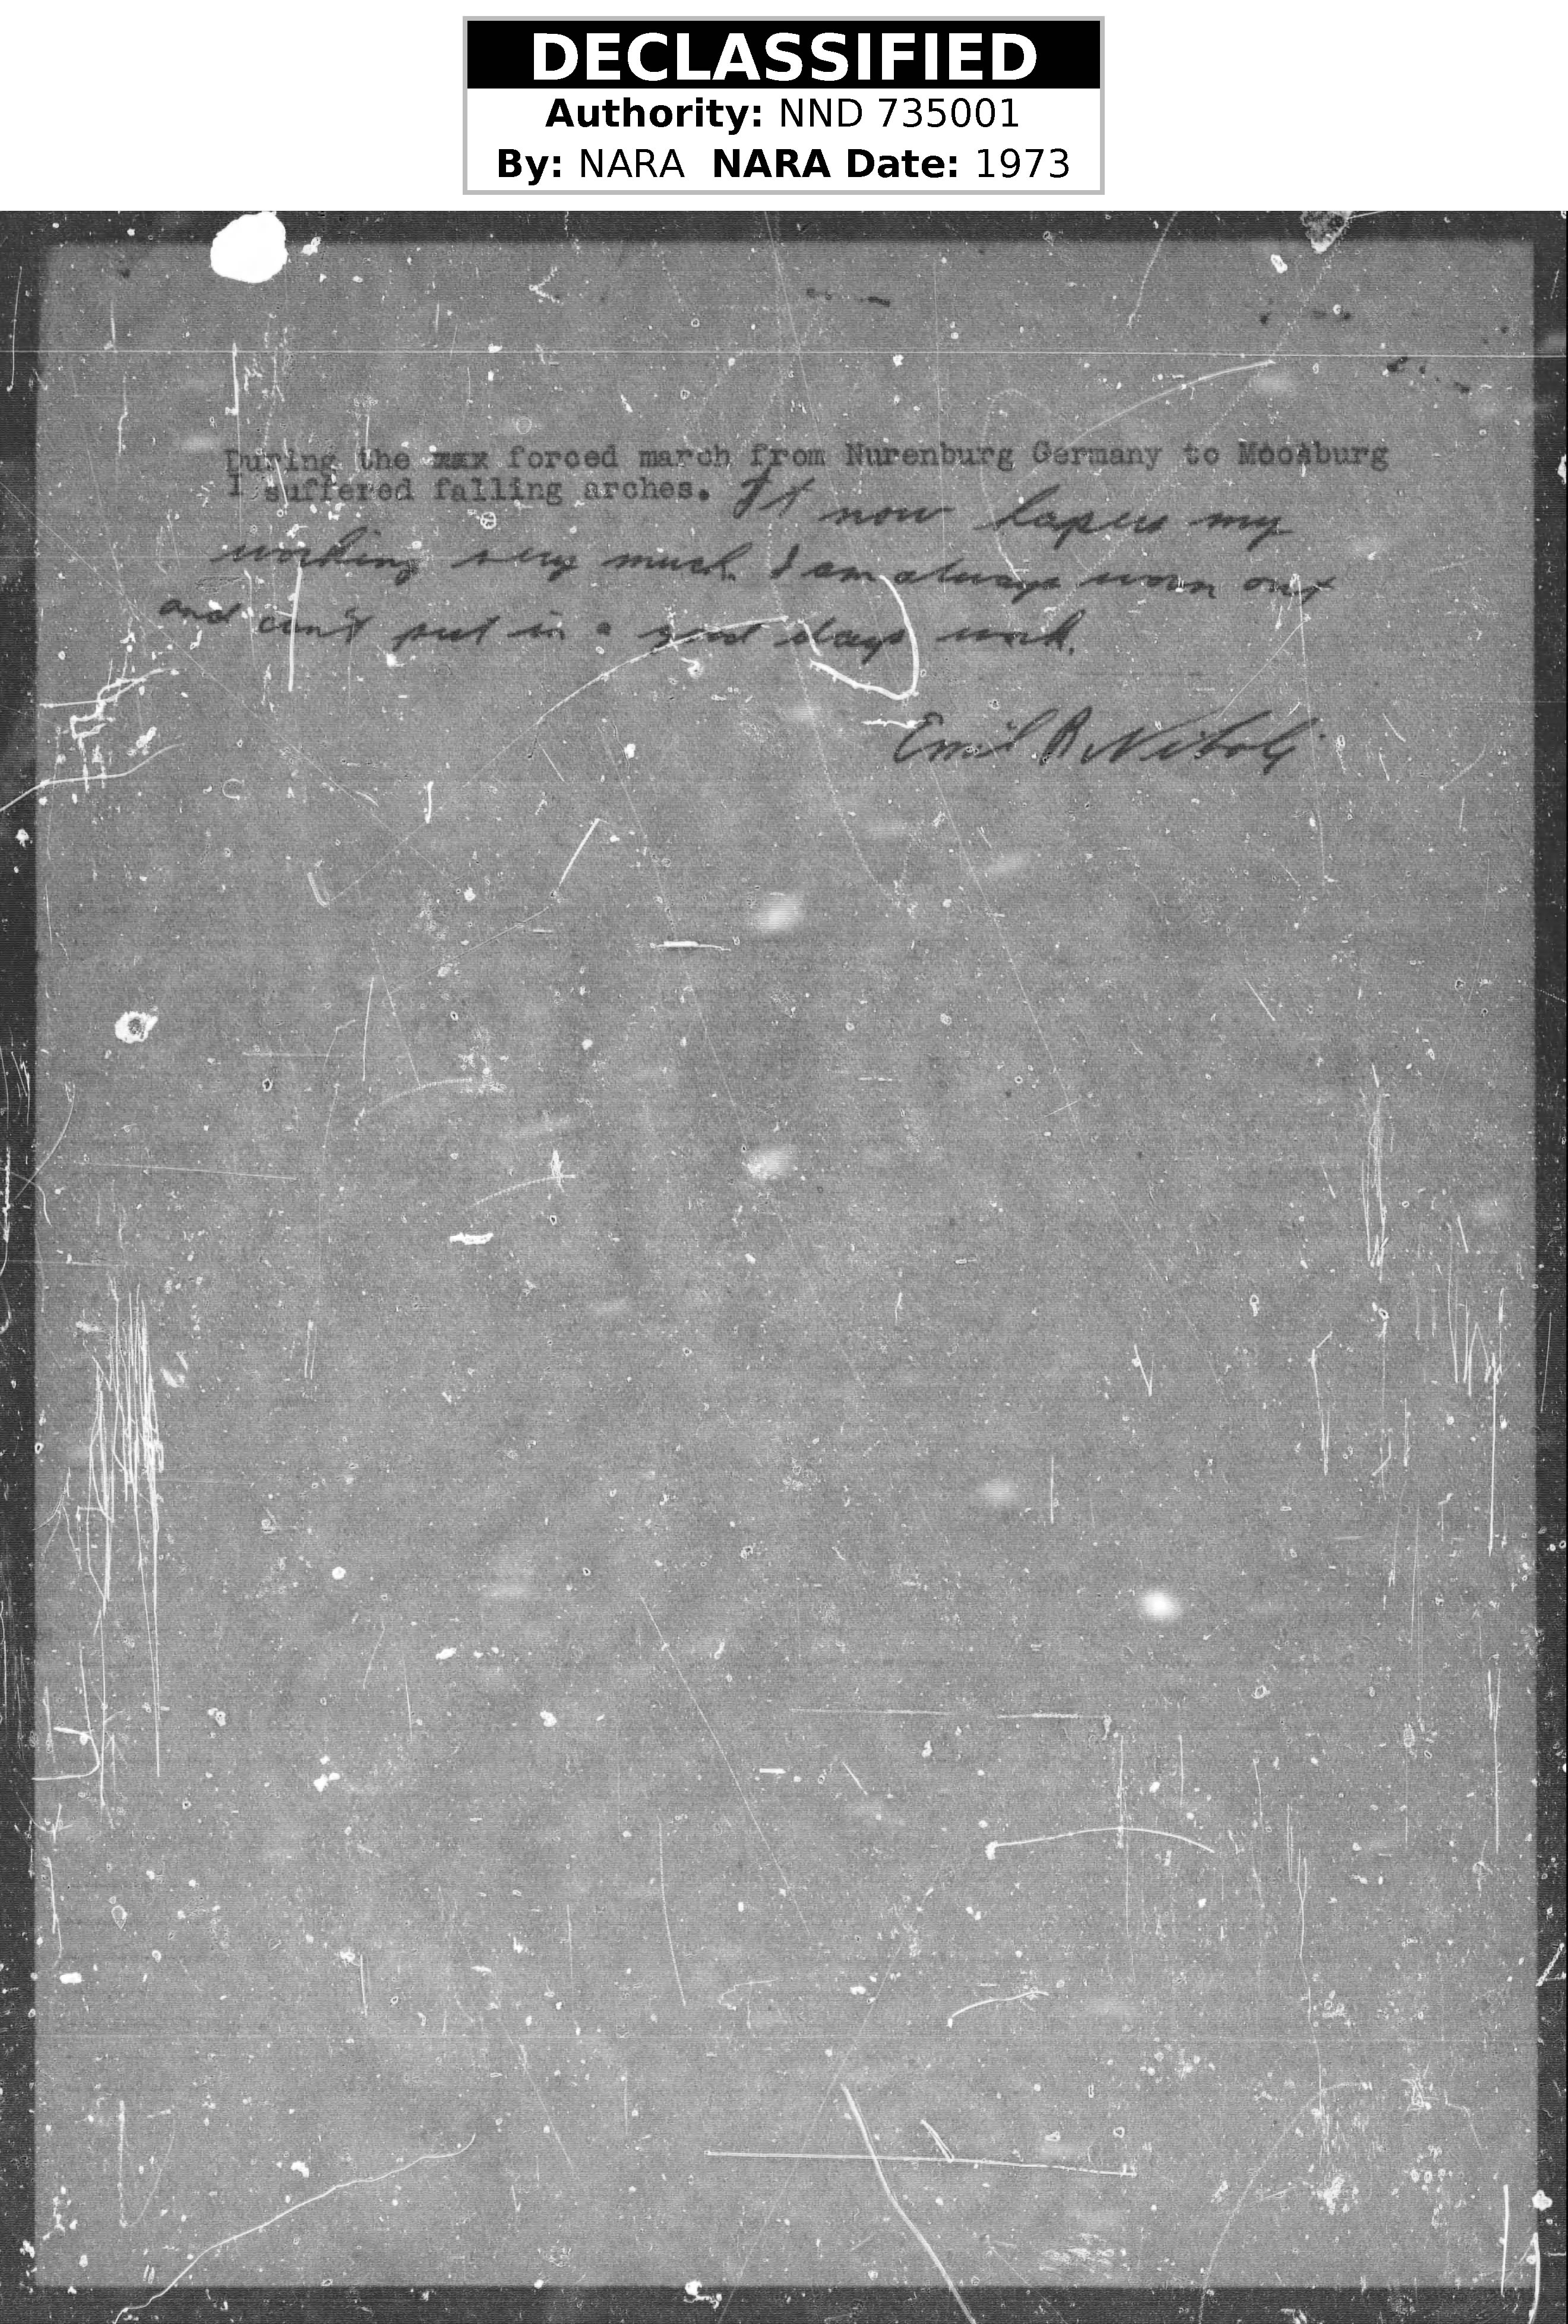 DECLASSIFIED
Authority: NND 735001
By: NARA NARA Date: 1973
During the xxx forced march from Nurenburg Germany to Moosburg
I suffered falling arches. It now hapers my
working very much. I am always worn out
and can't put in a good days work.
Emil R